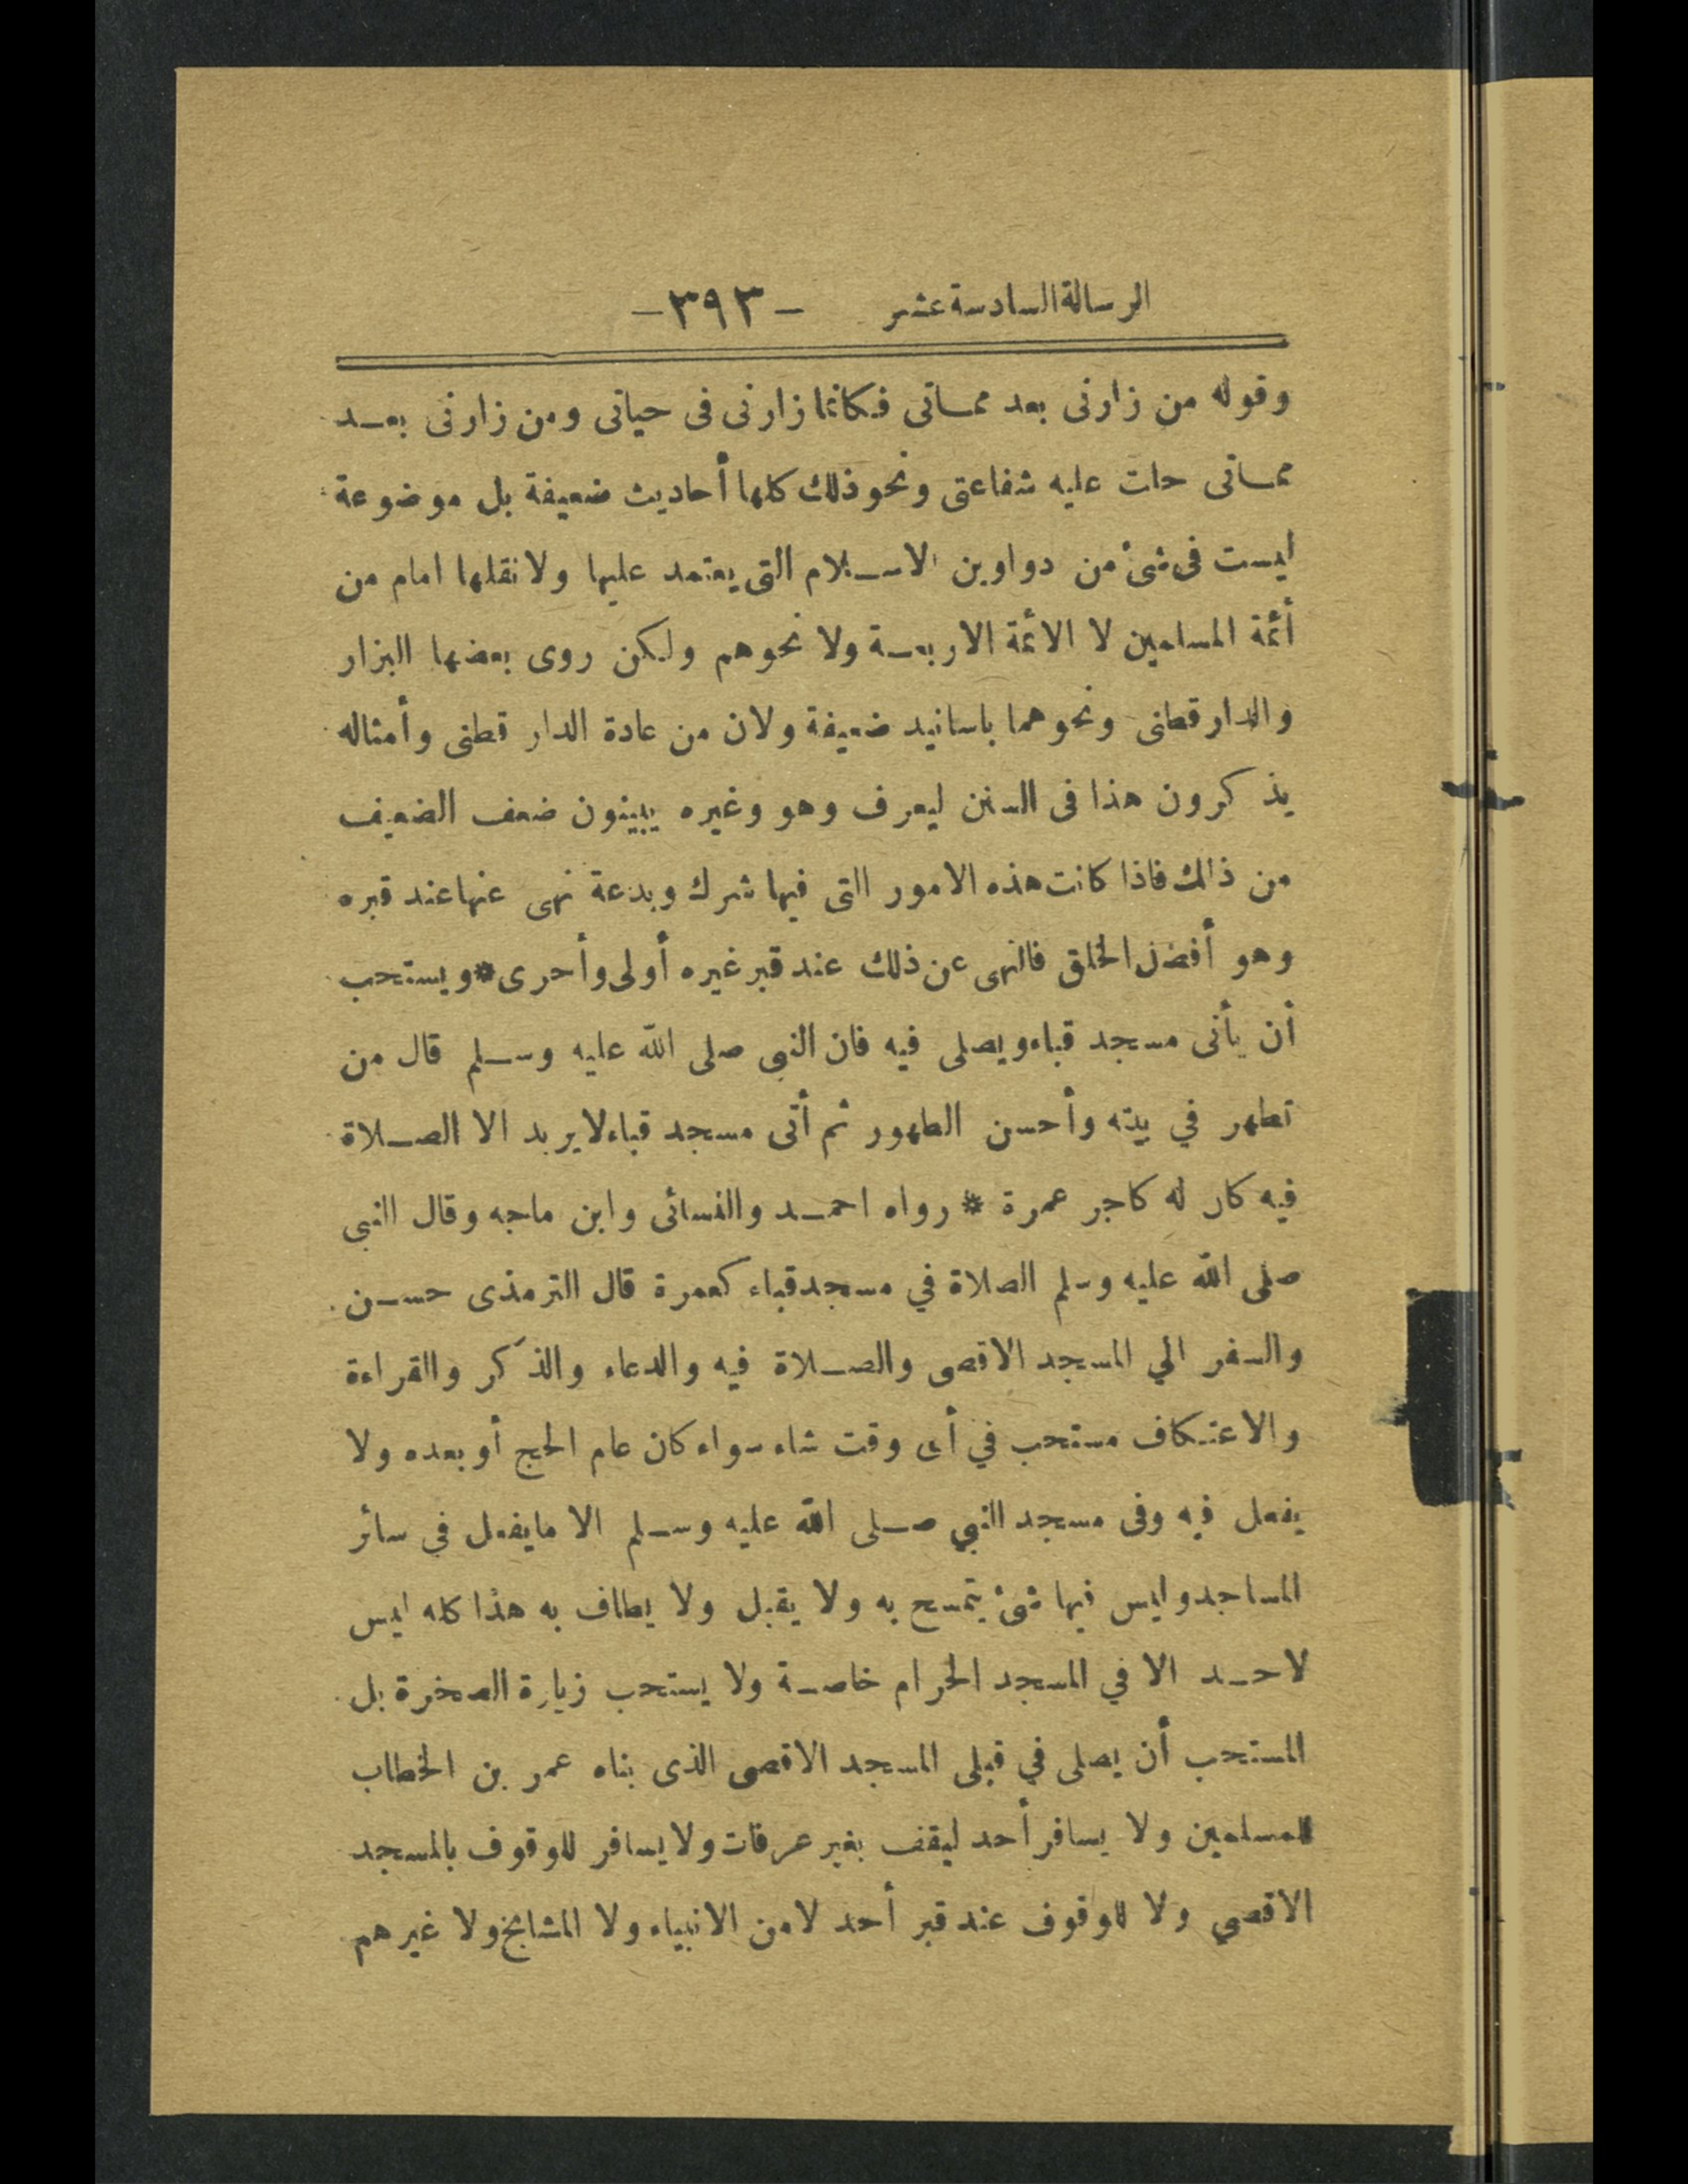 الرسالة السادسة عشر -٣٩٣-
وقوله من زارنى بعد ممـاتى فكانما زارنى فى حياتى ومن زارنى بعـد
ممـاتى حلت عليه شفاعتى ونحو ذلك كلها أحاديث ضعيفة بل موضوعة
ليست فى شئ من دواوين الاسـلام التى يعتمد عليها ولا نقلها امام من
أئمة المسلمين لا الائمة الاربعـة ولا نحوهم ولكن روى بعضها البزار
والدار قطنى ونحوهما باسانيد ضعيفة ولان من عادة الدار قطنى وأمثاله
يذكرون هذا فى السنن ليعرف وهو وغيره يبينون ضعف الضعيف
من ذلك فاذا كانت هذه الامور التى فيها شرك وبدعة نهى عنها عند قبره
وهو أفضل الخلق فالنهى عن ذلك عند قبر غيره أولى وأحرى * ويستحب
أن يأتى مسجد قباء ويصلى فيه فان النبى صلى الله عليه وسـلم قال من
تطهر في بيته وأحسن الطهور ثم أتى مسجد قباء لايريد الا الصـلاة
فيه كان له كاجر عمرة * رواه احمـد والنسائى وابن ماجه وقال النبى
صلى الله عليه وسلم الصلاة في مسجد قباء كعمرة قال الترمذى حسـن
والسفر الي المسجد الاقصى والصـلاة فيه والدعاء والذكر والقراءة
والاعتـكاف مستحب في أى وقت شاء سواء كان عام الحج أو بعده ولا
يفعل فيه وفى مسجد النبي صـلى الله عليه وسـلم الا مايفعل في سائر
المساجد وليس فيها شئ يتمسح به ولا يقبل ولا يطاف به هذا كله ليس
لاحـد الا في المسجد الحرام خاصـة ولا يستحب زيارة الصخرة بل
المستحب أن يصلى في قبلى المسجد الاقصى الذى بناه عمر بن الخطاب
للمسلمين ولا يسافر أحد ليقف بغير عرفات ولا يسافر للوقوف بالمسجد
الاقصي ولا للوقوف عند قبر أحد لا من الانبياء ولا المشايخ ولا غيرهم